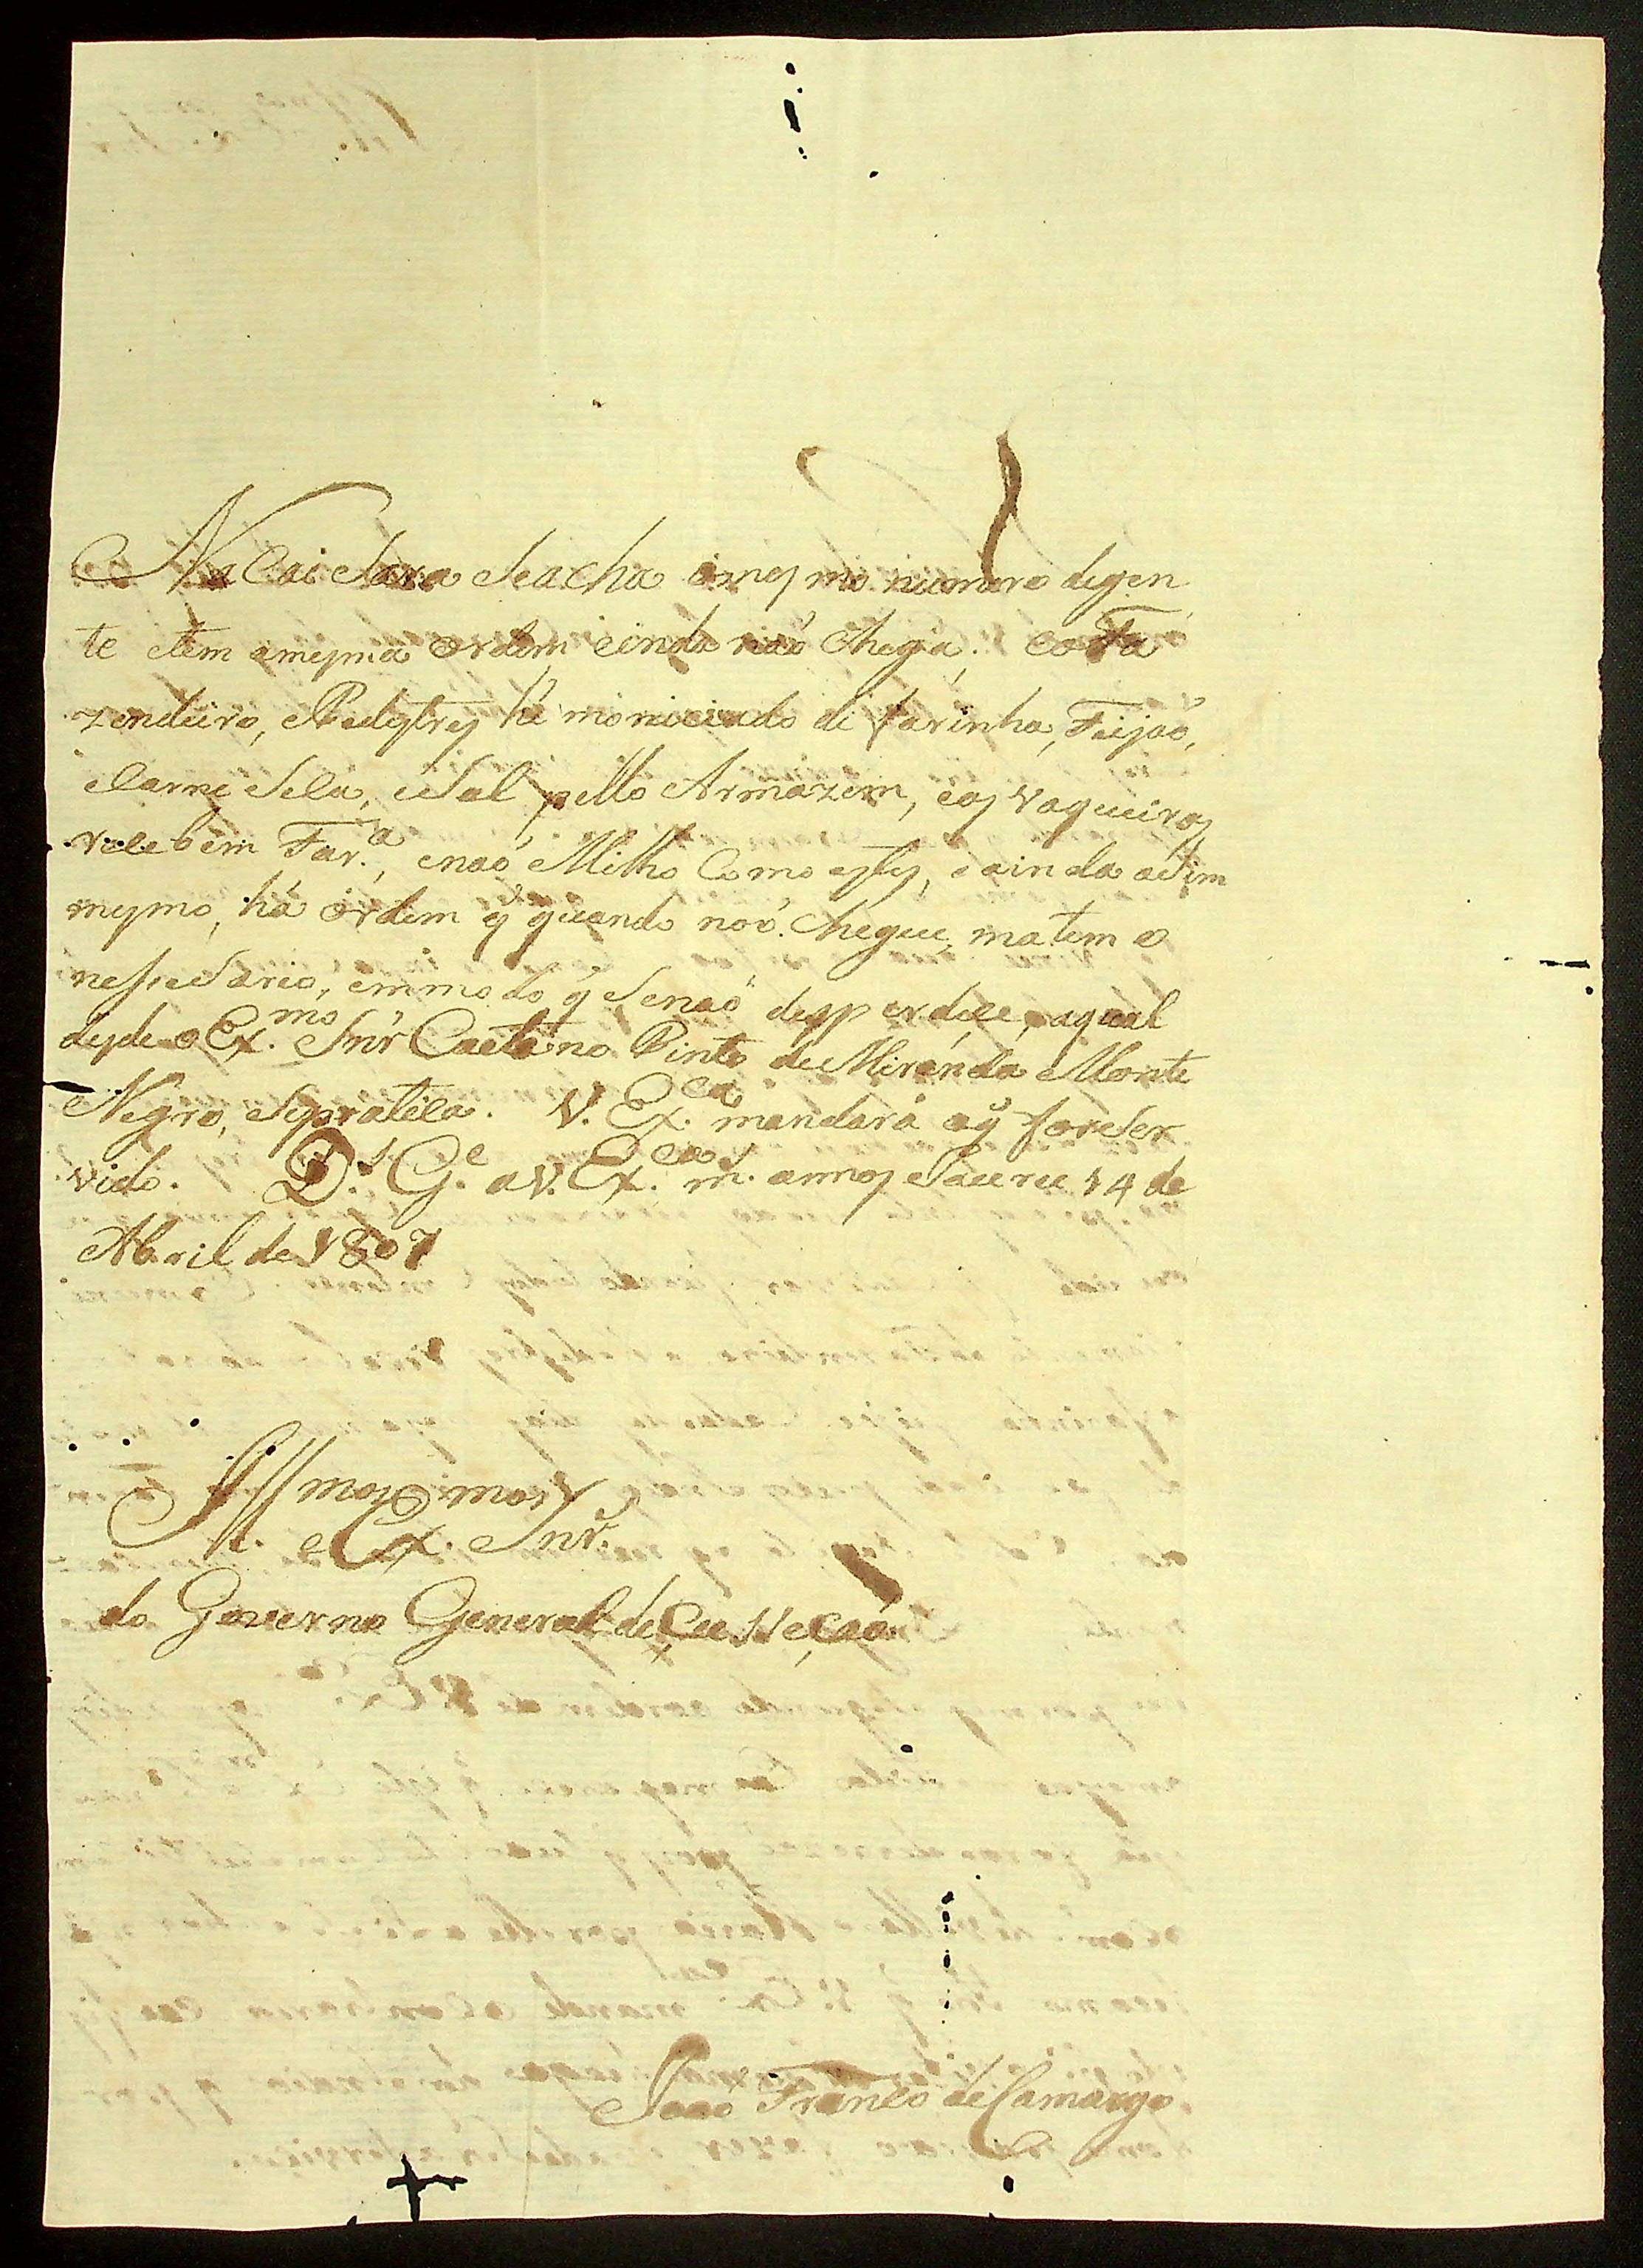 Na Caissara Seacha omesmo numero degen
te etem amesma ordem, eindo naõ chega; eoFa
zendeiro, ePedestres hé moniciado di farinha, Feijaõ,
eCarne Seca, eSal pello Armazem, eos Vaqueiros
recebem Far.ª, enaõ Milho Como estes, eainda aSim
mesmo, há ordem q̃ quando naõ chegue matem o
nessesario, emmodo q̃ Senaõ desperdice, aqual
desde o Ex.mo Snr̃ Caetano Pinto de Miranda Monte
Negro, Sepratica. V. Ex.cia mandará oq̃ forSer
vido. D.s G.e a V. Ex.cias m. annos Jauru 14 de
Abril de 1807
Ill.mos e Ex.mos Snr.es
do Governo General de Successaõ
Joaõ Franco de Camargo